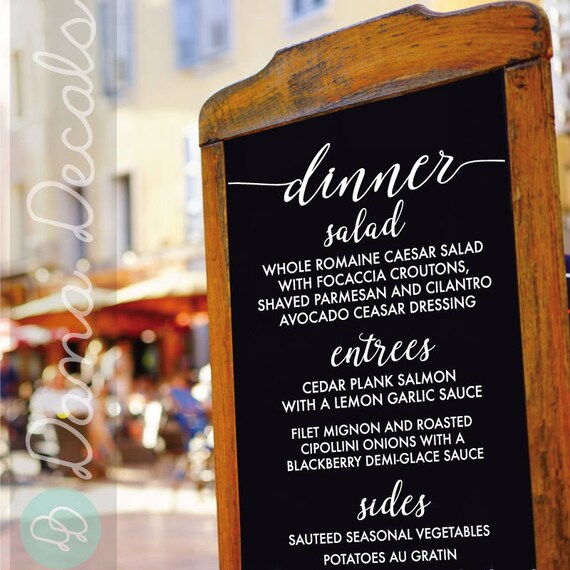 dinner
salad
WHOLE ROMAINE CAESAR SALAD
WITH FOCACCIA CROUTONS,
SHAVED PARMESAN AND CILANTRO
AVOCADO CEASAR DRESSING
entrees
CEDAR PLANK SALMON
WITH A LEMON GARLIC SAUCE
FILET MIGNON AND ROASTED
CIPOLLINI ONIONS WITH A
BLACKBERRY DEMI-GLACE SAUCE
sides
SAUTEED SEASONAL VEGETABLES
POTATOES AU GRATIN
Dana Decals
DD